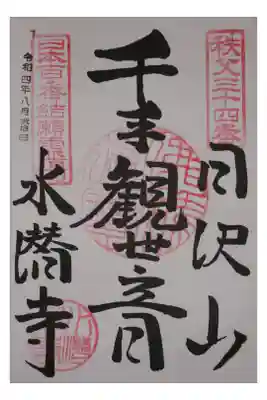 秩父三十四番
日沢山
千手観世音
水潜寺
日本百番結願霊場
令和四年八月